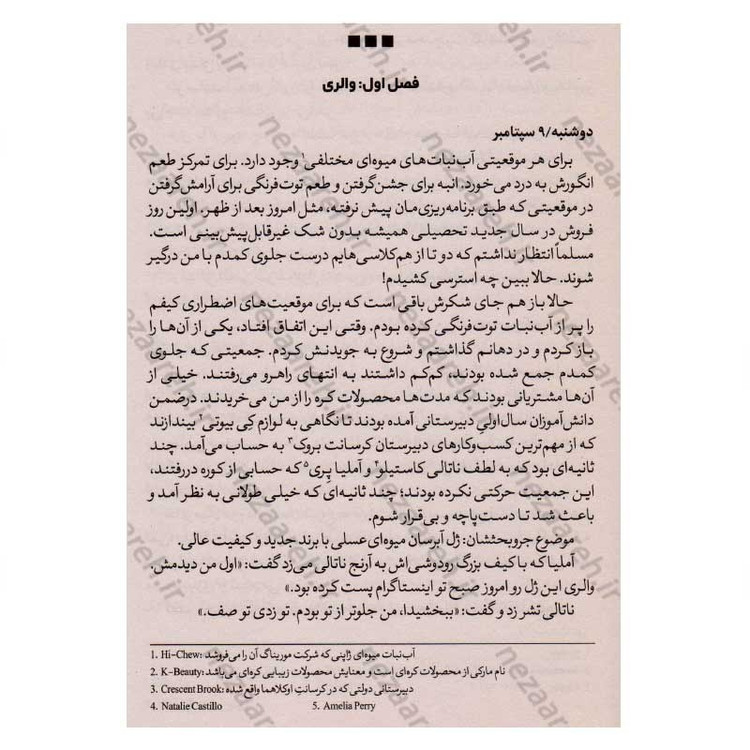 فصل اول: والری
دوشنبه/۹ سپتامبر
برای هر موقعیتی آب‌نبات‌های میوه‌ای مختلفی۱ وجود دارد. برای تمرکز طعم
انگورش به درد می‌خورد. انبه برای جشن‌گرفتن و طعم توت‌فرنگی برای آرامش‌گرفتن
در موقعیتی که طبق برنامه‌ریزی‌مان پیش نرفته، مثل امروز بعد از ظهر. اولین روز
فروش در سال جدید تحصیلی همیشه بدون شک غیرقابل‌پیش‌بینی است.
مسلماً انتظار نداشتم که دو تا از هم‌کلاسی‌هایم درست جلوی کمدم با من درگیر
شوند. حالا ببین چه استرسی کشیدم!
حالا باز هم جای شکرش باقی است که برای موقعیت‌های اضطراری کیفم
را پر از آب‌نبات توت‌فرنگی کرده بودم. وقتی این اتفاق افتاد، یکی از آن‌ها را
باز کردم و در دهانم گذاشتم و شروع به جویدنش کردم. جمعیتی که جلوی
کمدم جمع شده بودند، کم‌کم داشتند به انتهای راهرو می‌رفتند. خیلی از
آن‌ها مشتریانی بودند که مدت‌ها محصولات کره را از من می‌خریدند. درضمن
دانش‌آموزان سال‌اولیِ دبیرستانی آمده بودند تا نگاهی به لوازم کِی بیوتی۲ بیندازند
که از مهم‌ترین کسب‌وکارهای دبیرستان کرسانت بروک۳ به حساب می‌آمد. چند
ثانیه‌ای بود که به لطف ناتالی کاستیلو۴ و آملیا پِری۵ که حسابی از کوره دررفتند،
این جمعیت حرکتی نکرده بودند؛ چند ثانیه‌ای که خیلی طولانی به نظر آمد و
باعث شد تا دست‌پاچه و بی‌قرار شوم.
موضوع جروبحثشان: ژل آبرسان میوه‌ای عسلی با برند جدید و کیفیت عالی.
آملیا که با کیف بزرگ رودوشی‌اش به آرنج ناتالی می‌زد گفت: «اول من دیدمش.
والری این ژل رو امروز صبح تو اینستاگرام پست کرده بود.»
ناتالی تشر زد و گفت: «ببخشیدا، من جلوتر از تو بودم. تو زدی تو صف.»
1. Hi-Chew: آب‌نبات میوه‌ای ژاپنی که شرکت موریناگ آن را می‌فروشد
2. K-Beauty: نام مارکی از محصولات کره‌ای است و معنایش محصولات زیبایی کره‌ای می‌باشد
3. Crescent Brook: دبیرستانی دولتی که در کرسانتِ اوکلاهما واقع شده
4. Natalie Castillo 5. Amelia Perry
nezaareh.ir